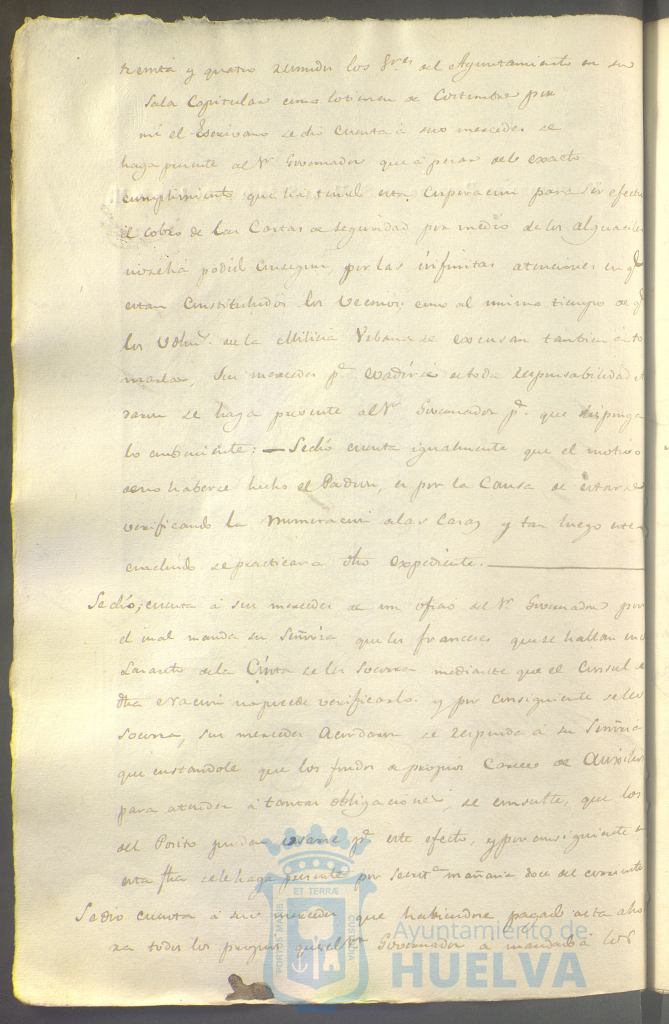 treinta y quatro reunidos los Sres del Ayuntamiento en su
Sala Capitular como lo tienen de Costumbre por
mi el Escrivano se dio cuenta á sus mercedes se
haga presente al Sr Governador que á pesar del exacto
cumplimiento que ha tenido esta Corporacion para ser efectivo
el cobro de las Cartas de seguridad por medio de los alguaciles
no se ha podido conseguir, por las infinitas atenciones en q.
estan Constituidos los vecinos; como al mismo tiempo de q.
los Volun.s de la Milicia Urbana se excusan tambien á to
marlas, Sus mercedes p.a evadirse de toda responsabilidad
se haga presente al Sr Governador p.a que disponga
lo conveniente: — Se dió cuenta igualmente que el motivo
de no haberse hecho el Padron, es por la Causa de estarse
verificando la numeracion de las Casas y tan luego este
concluido se practicara dho expediente.
Se dio, cuenta á sus mercedes de un oficio del Sr Governador por
el cual manda su Señoría que los franceses que se hallan en el
Lazareto de la Cinta se les Socorra mediante que el Consul de
dha nacion no puede verificarlo. y por consiguiente se les
Socorra, sus mercedes Acordaron se responda á su Señoria
que constandole que los fondos de propios Carecen de Auxilios
para atender á tantas obligaciones, se consulte, que los
del Posito puedan usarse p.a este efecto, y por consiguiente
esta fha se le haga presente por secret.a mañana doce del corriente
Se dio cuenta á sus mercedes que habiendose pagado asta aho
ra todos los propios que el Sr Governador á mandado
PORTUS MARIS
ET TERRÆ
CUSTODIA
Ayuntamiento de
HUELVA